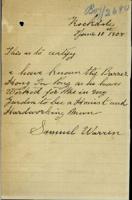 Rochdale
June 10th 1904
This is to certify
I have known the Bearer
Hong for long as he have
Worked for Me in my
Garden to be a Honest and
Hardworking Man
Samuel Warren